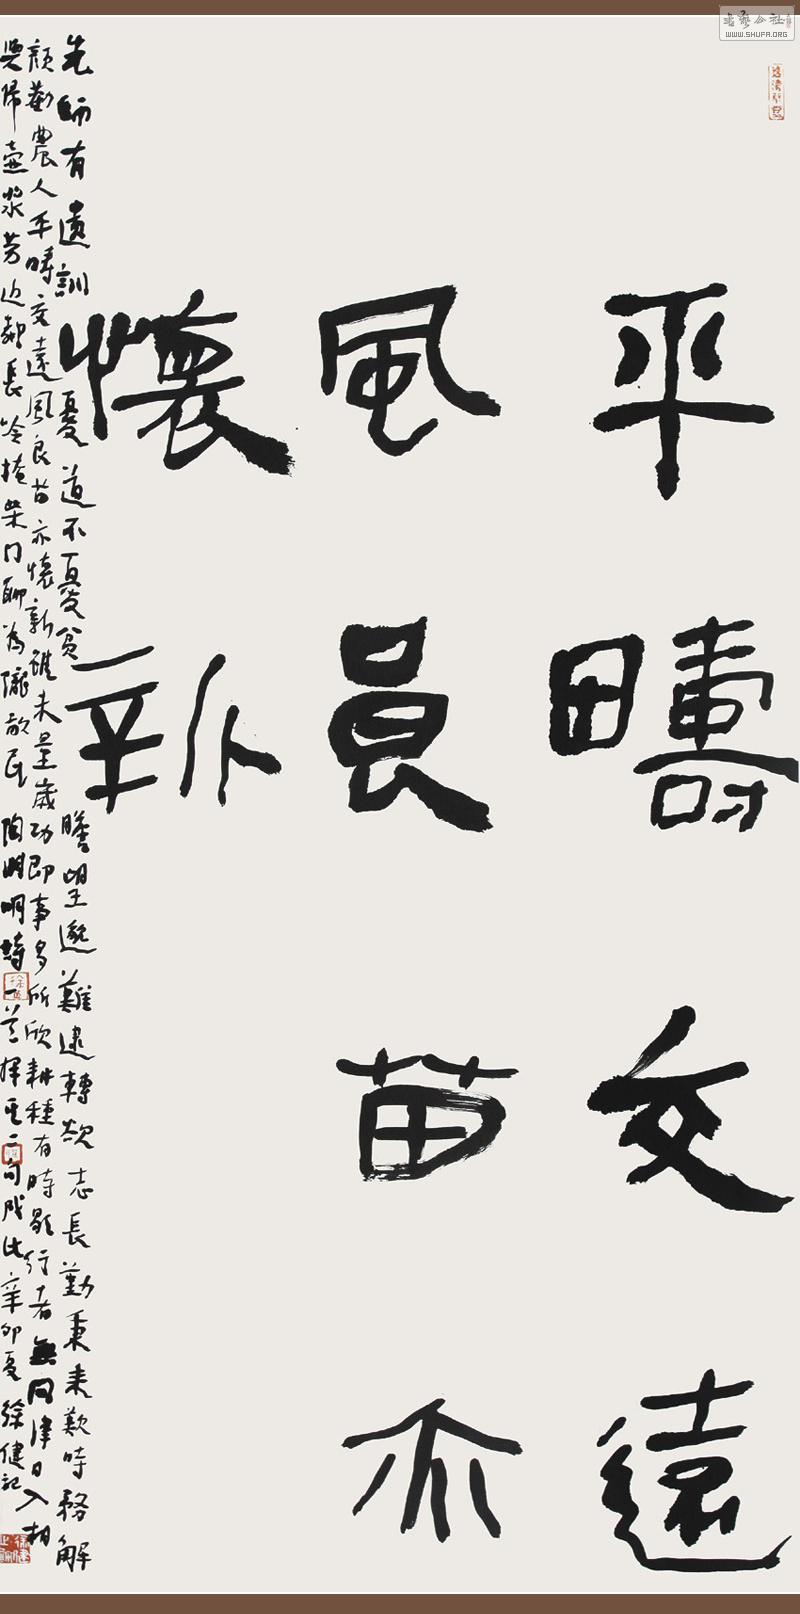 平疇交遠
風良苗亦
懷新
先師有遺訓憂道不憂貧瞻望邈難逮轉欲志長勤秉耒歡時務解
顏勸農人平疇交遠風良苗亦懷新雖未量歲功即事多所欣耕種有時歇行者無問津日入相
與歸壺漿勞近鄰長吟掩柴門聊為隴畝民陶淵明詩一首擇其二句成此辛卯夏徐健記
書藝公社
WWW.SHUFA.ORG